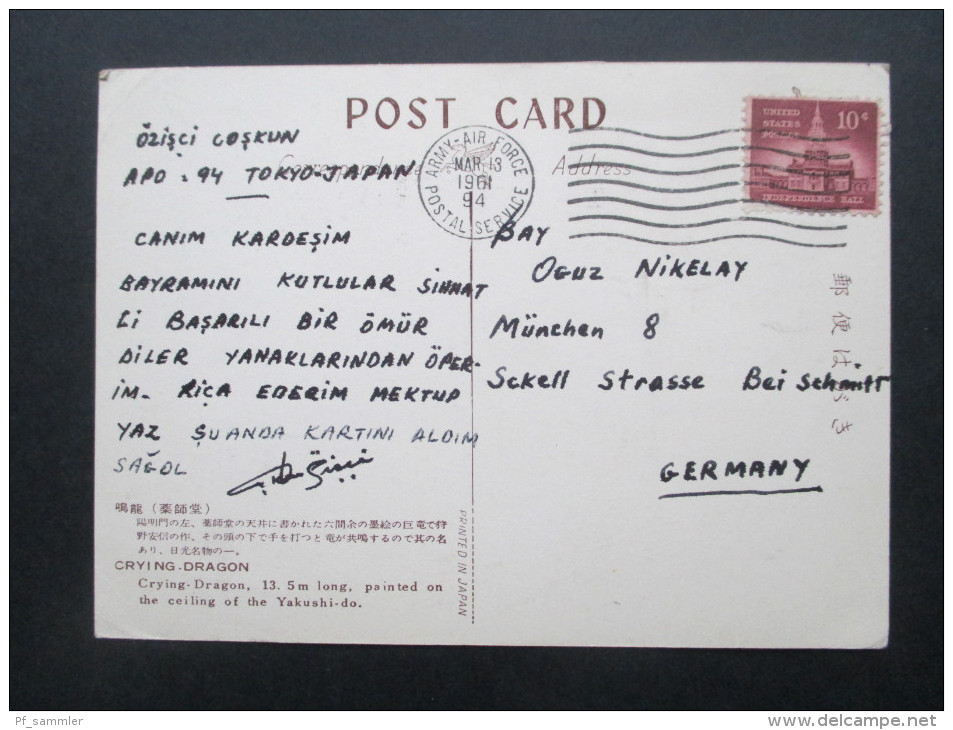 POST CARD
Correspondence
Address
ÖZİŞCİ COŞKUN
APO : 94 TOKYO-JAPAN
CANIM KARDEŞİM
BAYRAMINI KUTLULAR SIHHAT
Lİ BAŞARILI BİR ÖMÜR
DİLER YANAKLARINDAN ÖPER-
İM. RİÇA EDERİM MEKTUP
YAZ ŞUANDA KARTINI ALDIM
SAĞOL
ARMY-AIR FORCE
MAR 13
1961
94
POSTAL SERVICE
UNITED
STATES
POSTAGE
10¢
INDEPENDENCE HALL
BAY
OGUZ NİKELAY
München 8
Sckell Strasse Bei Schmitt
GERMANY
郵便はがき
鳴龍（薬師堂）
陽明門の左、薬師堂の天井に書かれた六間余の墨絵の巨竜で狩
野安信の作、その頭の下で手を打つと竜が共鳴するので其の名
あり、日光名物の一。
CRYING-DRAGON
Crying-Dragon, 13.5m long, painted on
the ceiling of the Yakushi-do.
PRINTED IN JAPAN
Pf_sammler
www.delcampe.net